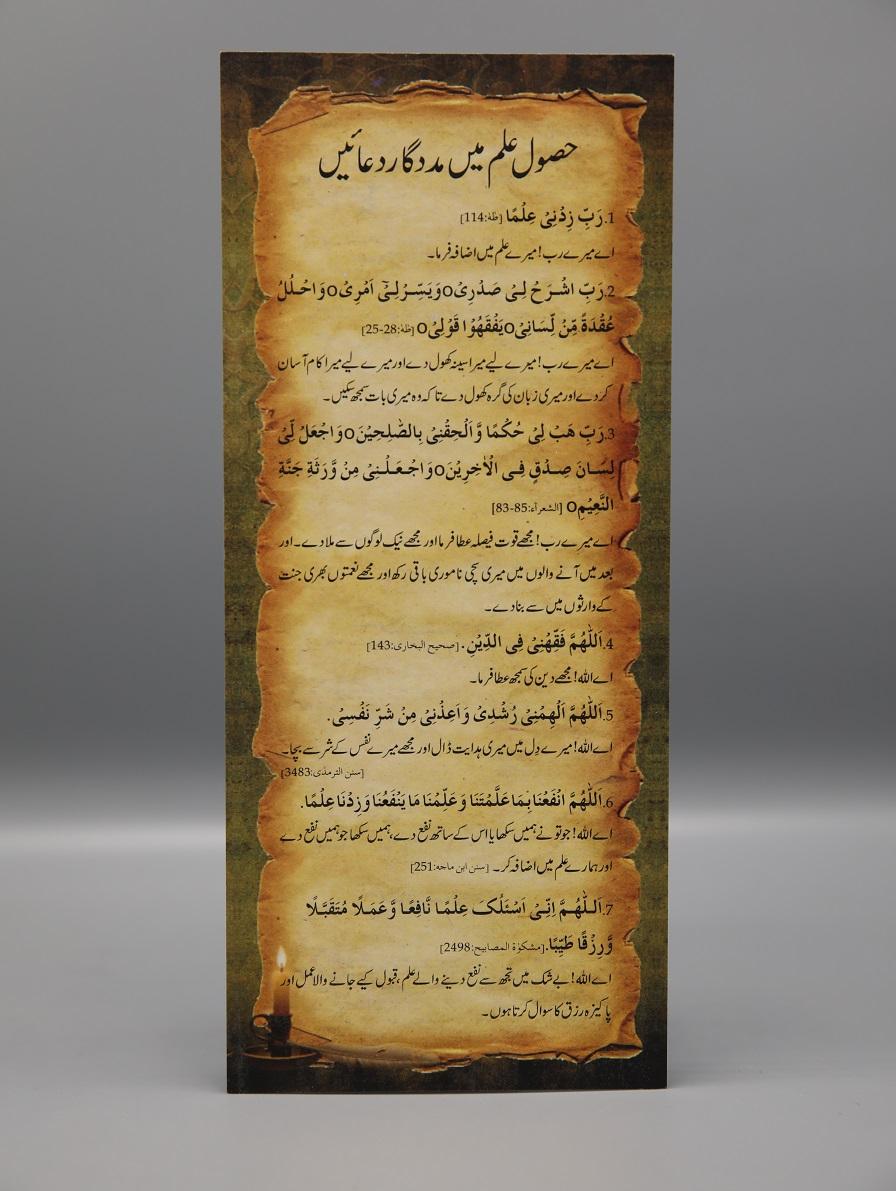 حصول علم میں مددگار دعائیں
1. رَبِّ زِدْنِیْ عِلْمًا [طٰہٰ:114]
اے میرے رب! میرے علم میں اضافہ فرما۔
2. رَبِّ اشْرَحْ لِیْ صَدْرِیْ o وَیَسِّرْ لِیْٓ اَمْرِیْ o وَاحْلُلْ
عُقْدَةً مِّنْ لِّسَانِیْ o یَفْقَهُوْا قَوْلِیْ o [طٰہٰ:28-25]
اے میرے رب! میرے لیے میرا سینہ کھول دے اور میرے لیے میرا کام آسان
کر دے اور میری زبان کی گرہ کھول دے تاکہ وہ میری بات سمجھ سکیں۔
3. رَبِّ هَبْ لِیْ حُكْمًا وَّاَلْحِقْنِیْ بِالصّٰلِحِیْنَ o وَاجْعَلْ لِّیْ
لِسَانَ صِدْقٍ فِی الْاٰخِرِیْنَ o وَاجْعَلْنِیْ مِنْ وَّرَثَةِ جَنَّةِ
النَّعِیْمِ o [الشعرآء:85-83]
اے میرے رب! مجھے قوت فیصلہ عطا فرما اور مجھے نیک لوگوں سے ملا دے۔ اور
بعد میں آنے والوں میں میری سچی ناموری باقی رکھ اور مجھے نعمتوں بھری جنت
کے وارثوں میں سے بنا دے۔
4. اَللّٰهُمَّ فَقِّهْنِیْ فِی الدِّیْنِ. [صحیح البخاری:143]
اے اللہ! مجھے دین کی سمجھ عطا فرما۔
5. اَللّٰهُمَّ اَلْهِمْنِیْ رُشْدِیْ وَاَعِذْنِیْ مِنْ شَرِّ نَفْسِیْ.
اے اللہ! میرے دِل میں میری ہدایت ڈال اور مجھے میرے نفس کے شر سے بچا۔
[سنن الترمذی:3483]
6. اَللّٰهُمَّ انْفَعْنَا بِمَا عَلَّمْتَنَا وَعَلِّمْنَا مَا یَنْفَعُنَا وَزِدْنَا عِلْمًا.
اے اللہ! جو تو نے ہمیں سکھایا اس کے ساتھ نفع دے، ہمیں سکھا جو ہمیں نفع دے
اور ہمارے علم میں اضافہ کر۔ [سنن ابن ماجہ:251]
7. اَللّٰهُمَّ اِنِّیْ اَسْئَلُکَ عِلْمًا نَّافِعًا وَّعَمَلًا مُتَقَبَّلًا
وَّرِزْقًا طَیِّبًا. [مشکوٰۃ المصابیح:2498]
اے اللہ! بے شک میں تجھ سے نفع دینے والے علم، قبول کیے جانے والا عمل اور
پاکیزہ رزق کا سوال کرتا ہوں۔